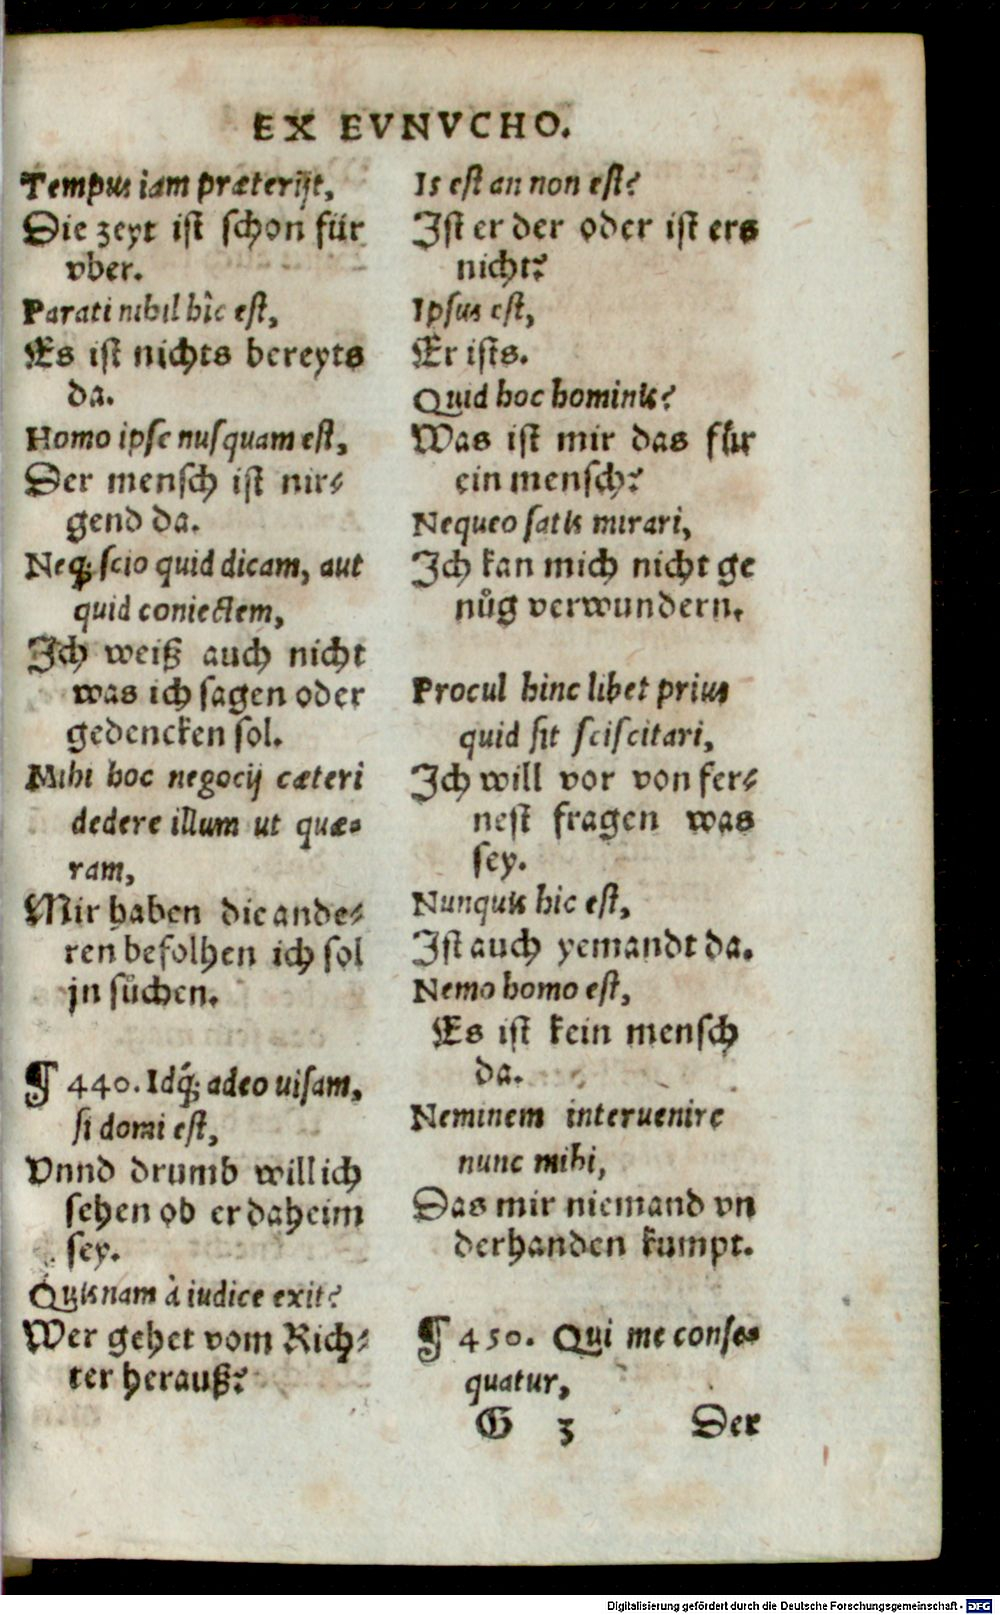 EX EVNVCHO.
Tempus iam præterijt,
Die zeyt ist schon für
vber.
Parati nihil hîc est,
Es ist nichts bereyts
da.
Homo ipse nusquam est,
Der mensch ist nir⸗
gend da.
Neq; scio quid dicam, aut
quid coniectem,
Ich weiß auch nicht
was ich sagen oder
gedencken sol.
Mihi hoc negocij cæteri
dedere illum ut quæ⸗
ram,
Mir haben die ande⸗
ren befolhen ich sol
jn sůchen.
¶ 440. Idq́; adeo uisam,
si domi est,
Vnnd drumb will ich
sehen ob er daheim
sey.
Quisnam à iudice exit?
Wer gehet vom Rich⸗
ter herauß?
Is est an non est?
Ist er der oder ist ers
nicht?
Ipsus est,
Er ists.
Quid hoc hominis?
Was ist mir das für
ein mensch?
Nequeo satis mirari,
Ich kan mich nicht ge
nůg verwundern.
Procul hinc libet prius
quid sit sciscitari,
Ich will vor von fer⸗
nest fragen was
sey.
Nunquis hic est,
Ist auch yemandt da.
Nemo homo est,
Es ist kein mensch
da.
Neminem interuenire
nunc mihi,
Das mir niemand vn
derhanden kumpt.
¶ 450. Qui me conse⸗
quatur,
G 3 Der
Digitalisierung gefördert durch die Deutsche Forschungsgemeinschaft - DFG